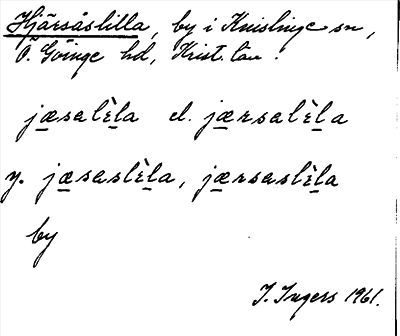 Hjärsåslilla, by i Knislinge sn,
Ö. Göinge hd, Krist. län.
jæsalè̱la el. jæ̱rsalè̱la
y. jæ̱saslè̱la, jæ̱rsaslè̱la
by
I. Ingers 1961.